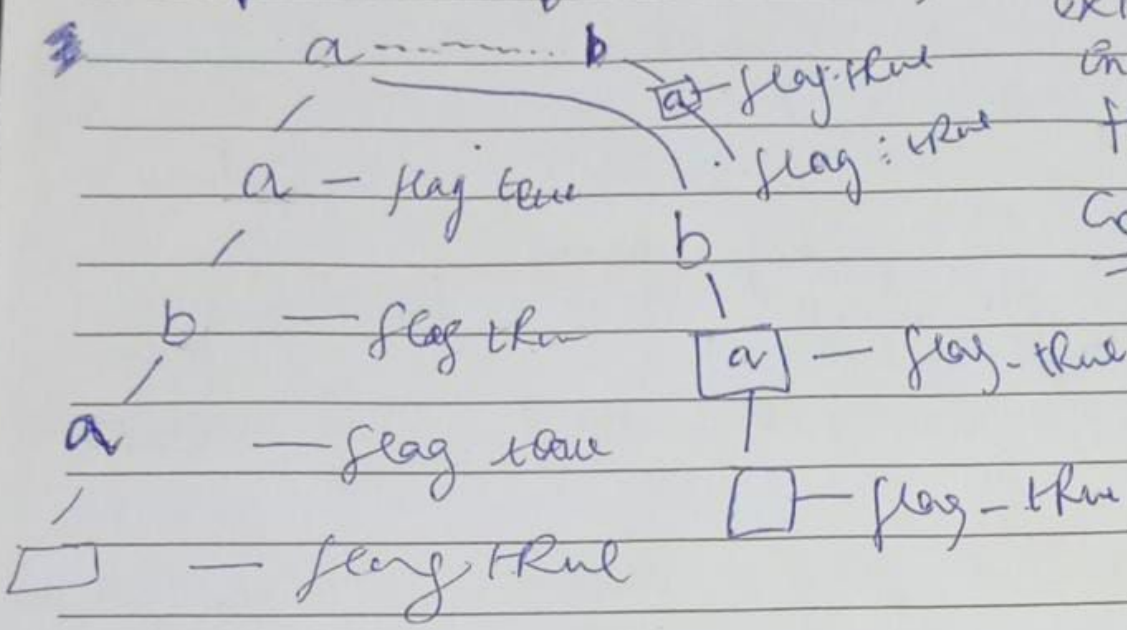 a ------- b
a - flag true
flag : true
a - flag true
b
b — flag true
a — flag - true
a — flag true
— flag - true
— flag true